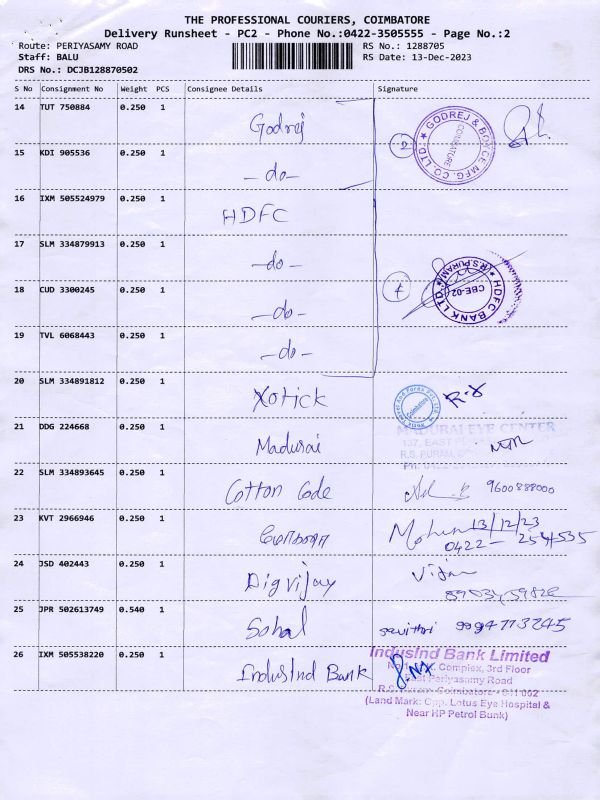 THE PROFESSIONAL COURIERS, COIMBATORE
Delivery Runsheet - PC2 - Phone No.:0422-3505555 - Page No.:2
Route: PERIYASAMY ROAD RS No.: 1288705
Staff: BALU RS Date: 13-Dec-2023
DRS No.: DCJB128870502
S No Consignment No Weight PCS Consignee Details Signature
14 TUT 750884 0.250 1 Godrej
2 GODREJ & BOYCE MFG. CO. LTD. COIMBATORE
15 KDI 905536 0.250 1 -do-
16 IXM 505524979 0.250 1 HDFC
17 SLM 334879913 0.250 1 -do-
4 HDFC BANK LTD R.S.PURAM CBE-02
18 CUD 3300245 0.250 1 -do-
19 TVL 6068443 0.250 1 -do-
20 SLM 334891812 0.250 1 Xotick
Coimbatore
21 DDG 224668 0.250 1 Madurai
MADURAI EYE CENTER
137, EAST
R.S. PURAM,
22 SLM 334893645 0.250 1 Cotton Code 9600888000
23 KVT 2966946 0.250 1 Mohan 13/12/23
0422-
24 JSD 402443 0.250 1 Digvijay
25 JPR 502613749 0.540 1 Sohal Savithri 9994773245
26 IXM 505538220 0.250 1 IndusInd Bank
IndusInd Bank Limited
Complex, 3rd Floor
East Periyasamy Road
Coimbatore - 641 002
(Land Mark: Opp. Lotus Eye Hospital &
Near HP Petrol Bunk)